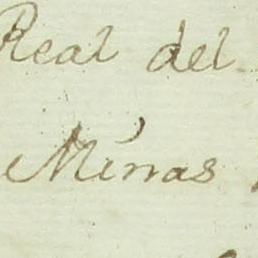 Real del
Minas